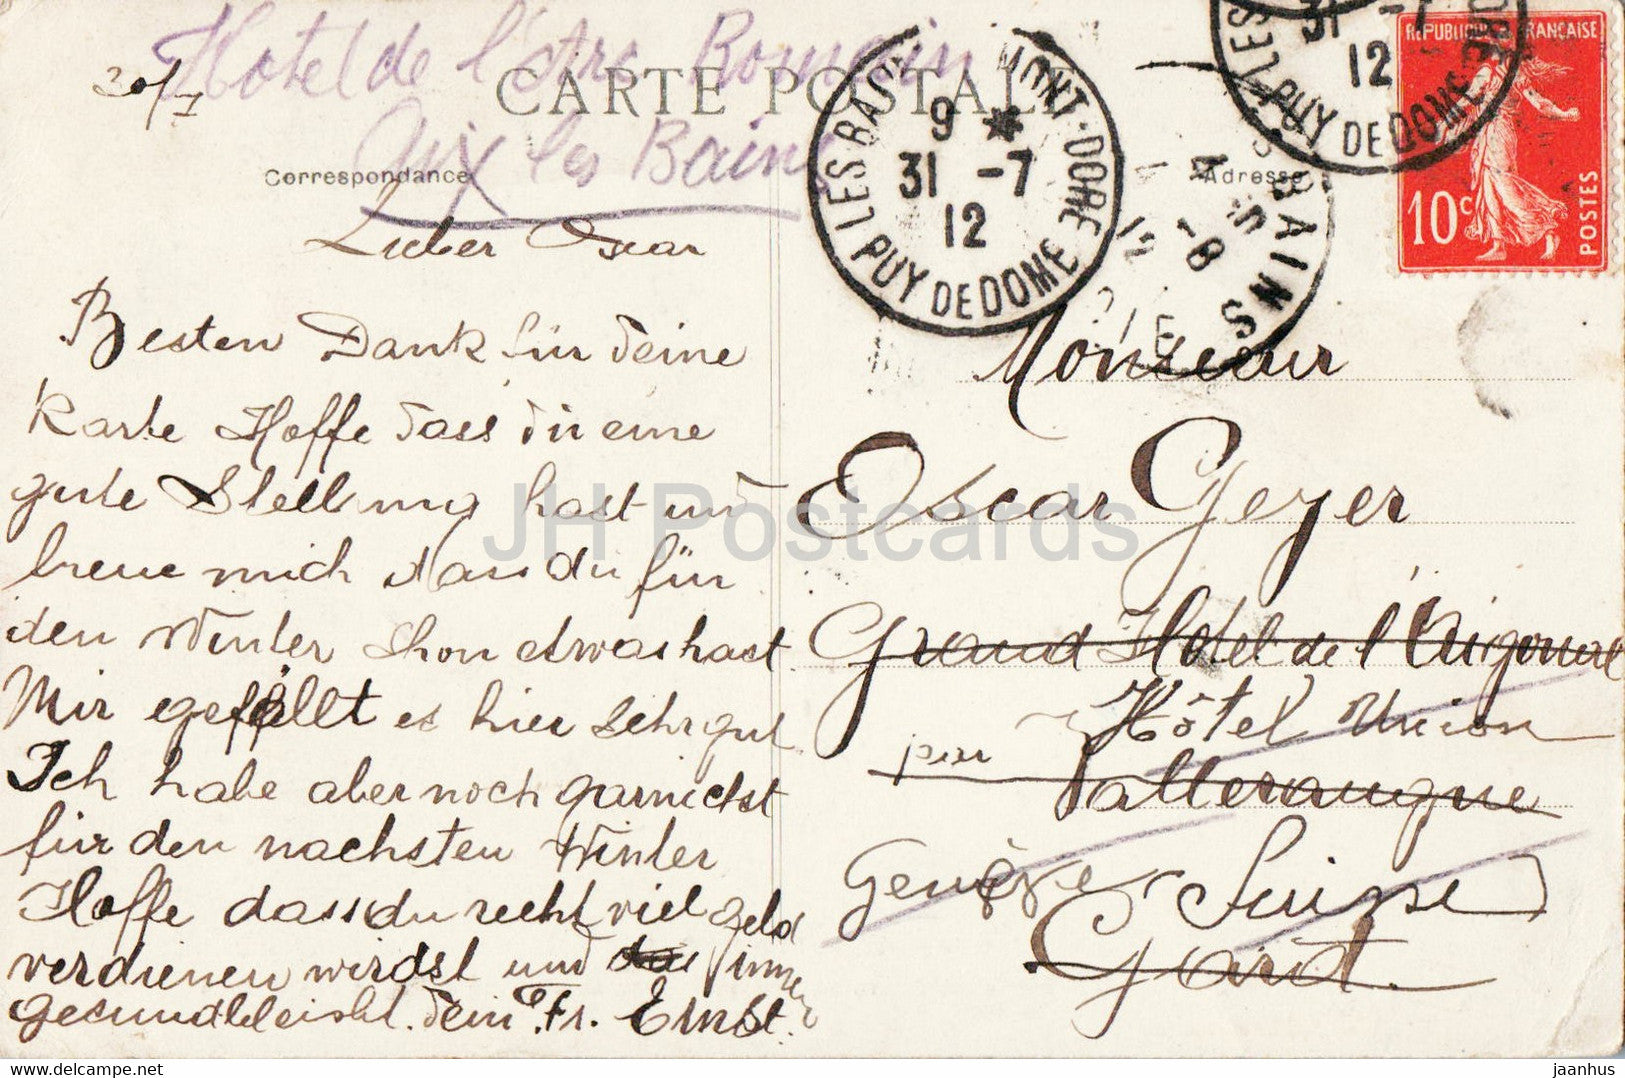 Hotel de l'Arc Romain
Aix les Bains
20/7
CARTE POSTALE
Correspondance
Adresse
LES BAINS MONT-DORE
9 *
31 -7
12
PUY DE DOME
31 -7
12
PUY DE DOME
BAINS
REPUBLIQUE FRANÇAISE
10c
POSTES
Lieber Oscar
Besten Dank für deine
Karte Hoffe dass du eine
gute Stellung hast und
freue mich dass du für
den Winter schon etwas hast
Mir egefällt es hier sehr gut
Ich habe aber noch garnichst
für den nachsten Winter
Hoffe dass du recht viel geld
verdienen wirdst und immer
gesund bleibst. Dein Fr. Ernst.
Monsieur
Oscar Geyer
Grand Hotel de l'Aigoual
Hôtel Union
par Valleraugue
Genève Suisse
Gard.
JH Postcards
hippostcard.com/store/jhpostcards
jaanhus